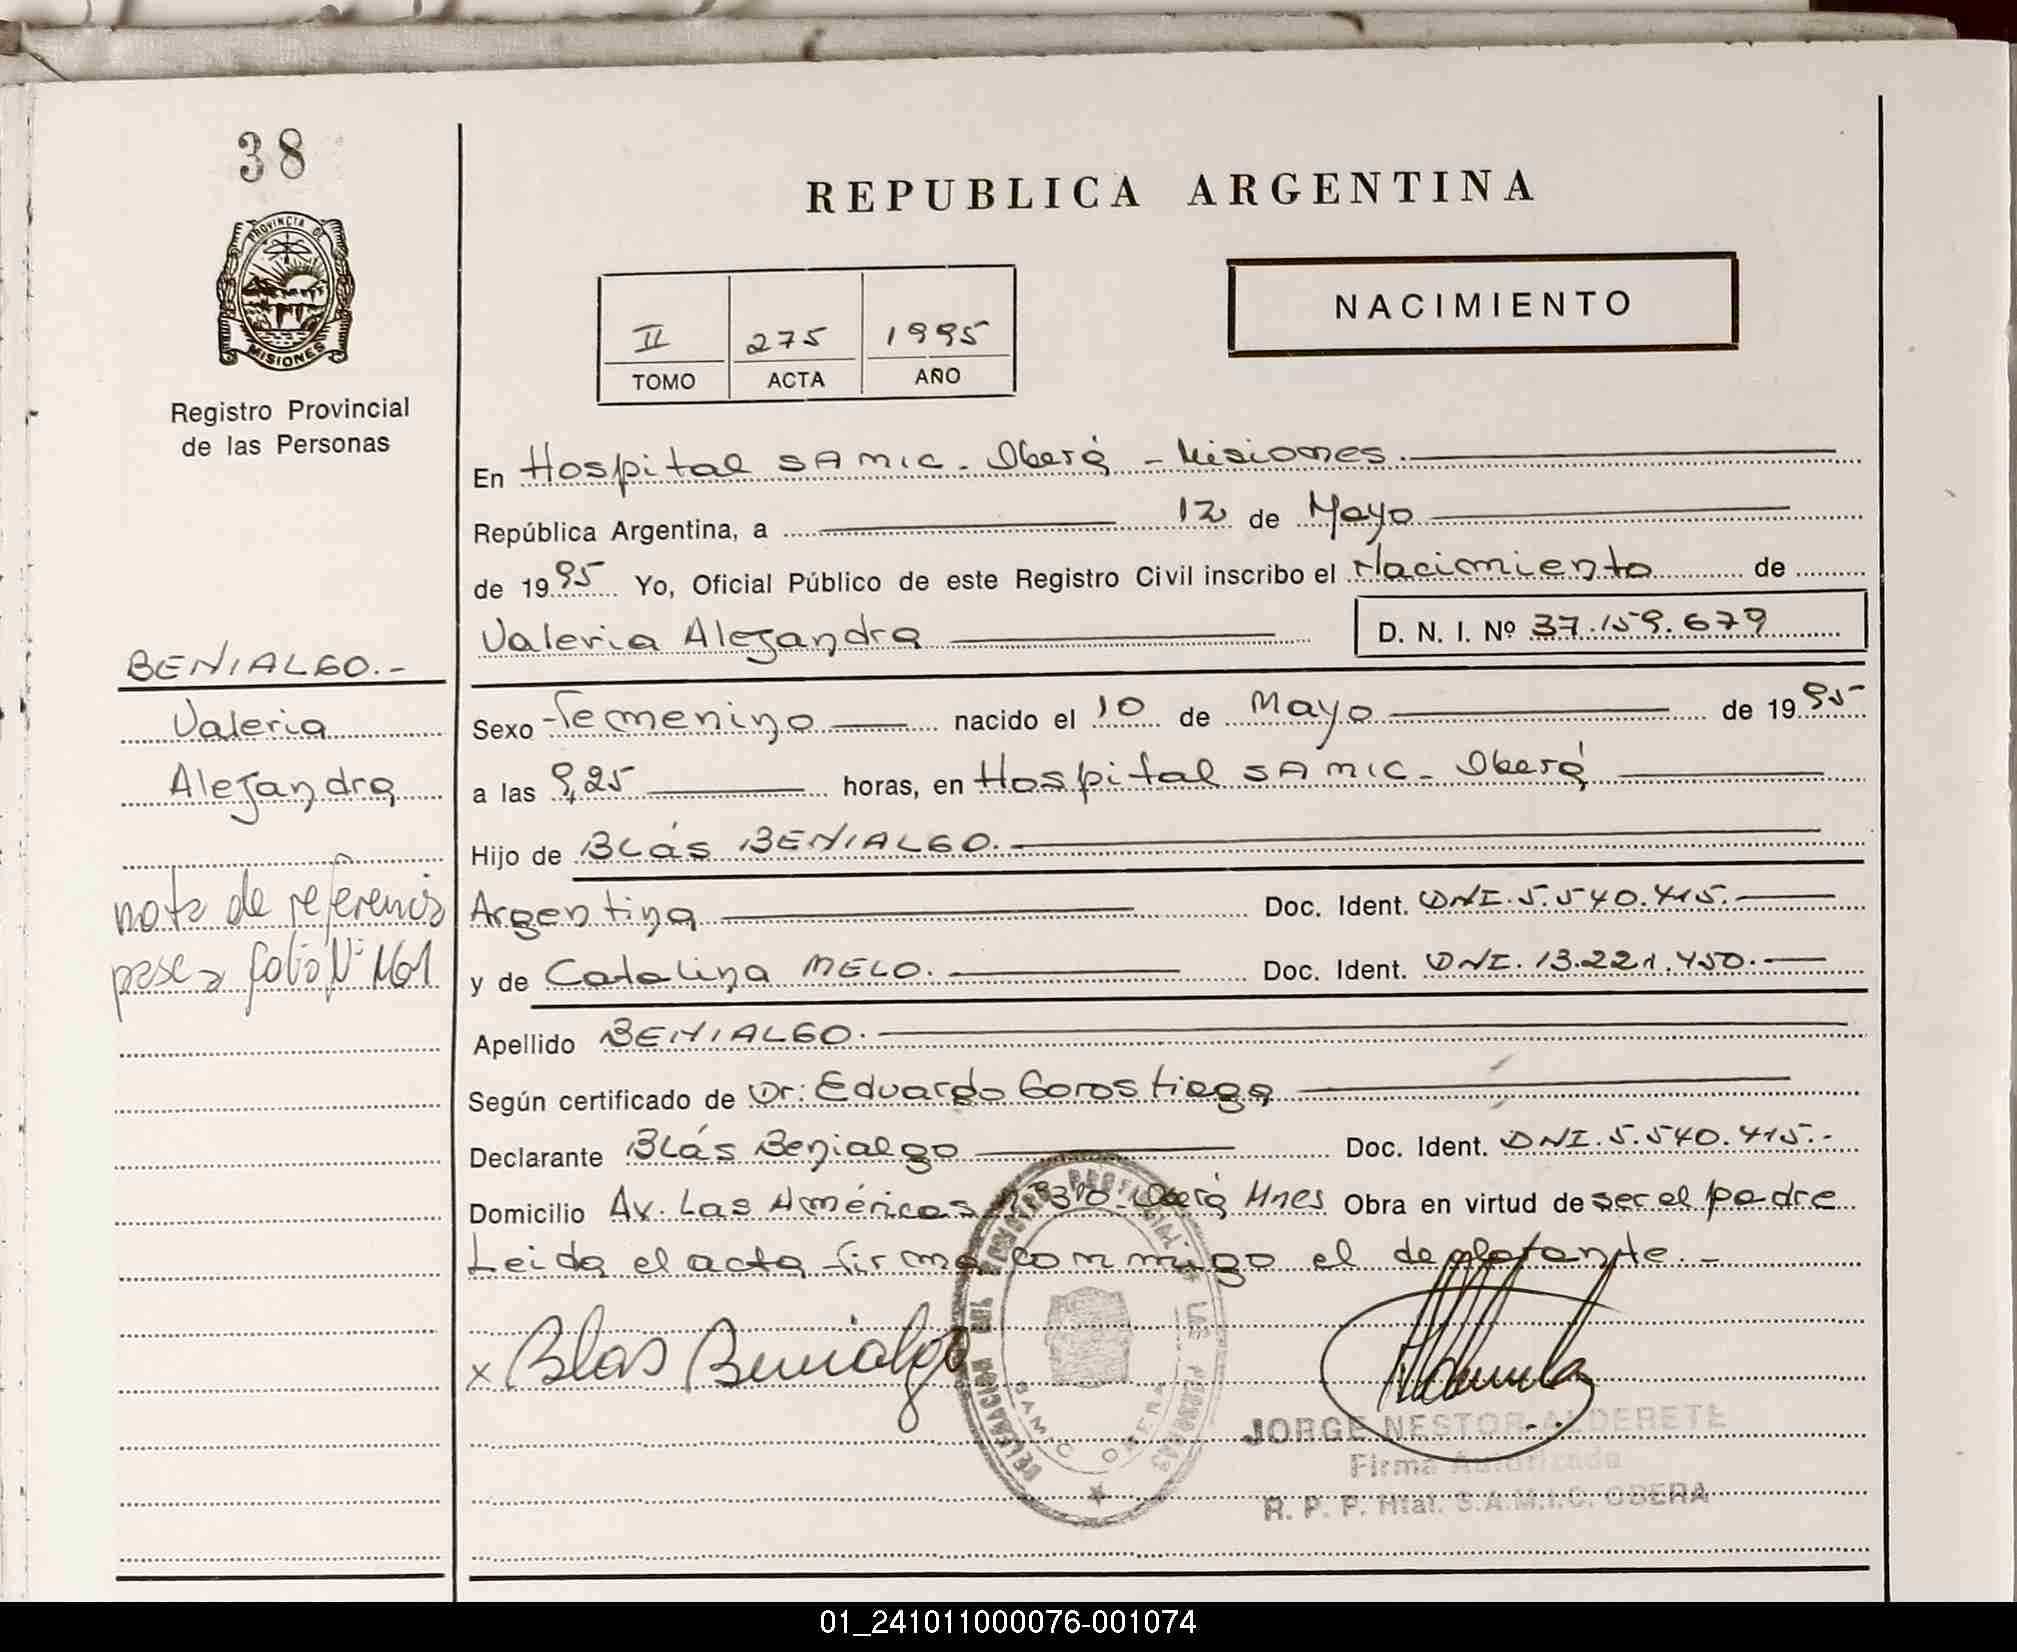 38
PROVINCIA DE
MISIONES
Registro Provincial
de las Personas
REPUBLICA ARGENTINA
II 275 1995
TOMO ACTA AÑO
NACIMIENTO
En Hospital SAMIC - Oberá - Misiones.
República Argentina, a 12 de Mayo
de 1995 Yo, Oficial Público de este Registro Civil inscribo el Nacimiento de
Valeria Alejandra D. N. I. Nº 37.159.679
BENIALGO.-
Valeria
Alejandra
nota de referencia
pase a folio Nº 161
Sexo Femenino nacido el 10 de Mayo de 1995
a las 9,25 horas, en Hospital SAMIC - Oberá
Hijo de Blás BENIALGO.
Argentina Doc. Ident. DNI. 5.540.415.
y de Catalina MELO. Doc. Ident. DNI. 13.221.450.
Apellido BENIALGO.
Según certificado de Dr: Eduardo Gorostiaga
Declarante Blás Benialgo Doc. Ident. DNI. 5.540.415.-
Domicilio Av. Las Américas Oberá Mnes Obra en virtud de ser el padre
Leida el acta firma conmigo el declarante.-
x Blas Benialgo
SAMIC OBERA
JORGE NESTOR ALDERETE
Firma Autorizada
R. P. P. Htal. S.A.M.I.C. OBERA
01_241011000076-001074